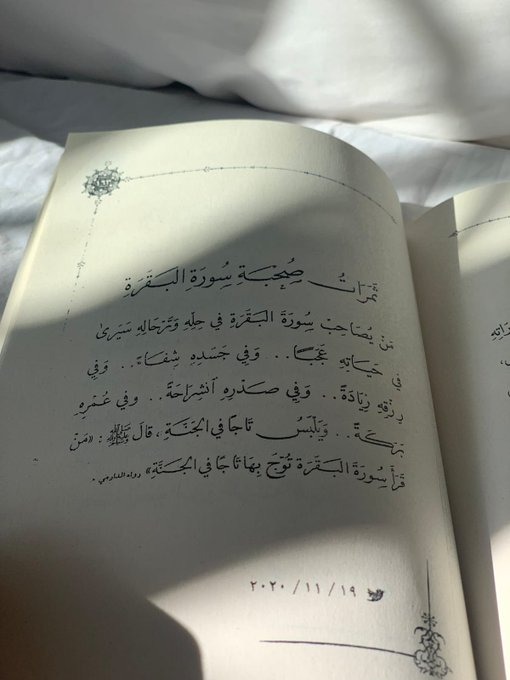 ثَمَرَاتُ صُحْبَةِ سُورَةِ البَقَرَةِ
مَنْ يُصَاحِبْ سُورَةَ البَقَرَةِ في حِلِّهِ وَتَرْحَالِهِ سَيَرىٰ
في حَيَاتِهِ عَجَبًا.. وَفي جَسَدِهِ شِفَاءً.. وَفي
رِزْقِهِ زِيَادَةً.. وَفي صَدْرِهِ انْشِرَاحَةً.. وفي عُمْرِهِ
بَرَكَةً.. وَيَلْبَسُ تَاجًا في الجَنَّةِ، قَالَ ﷺ: «مَنْ
قَرَأَ سُورَةَ البَقَرَةِ تُوِّجَ بِهَا تَاجًا في الجَنَّةِ» رواه الدارمي.
٢٠٢٠/١١/١٩